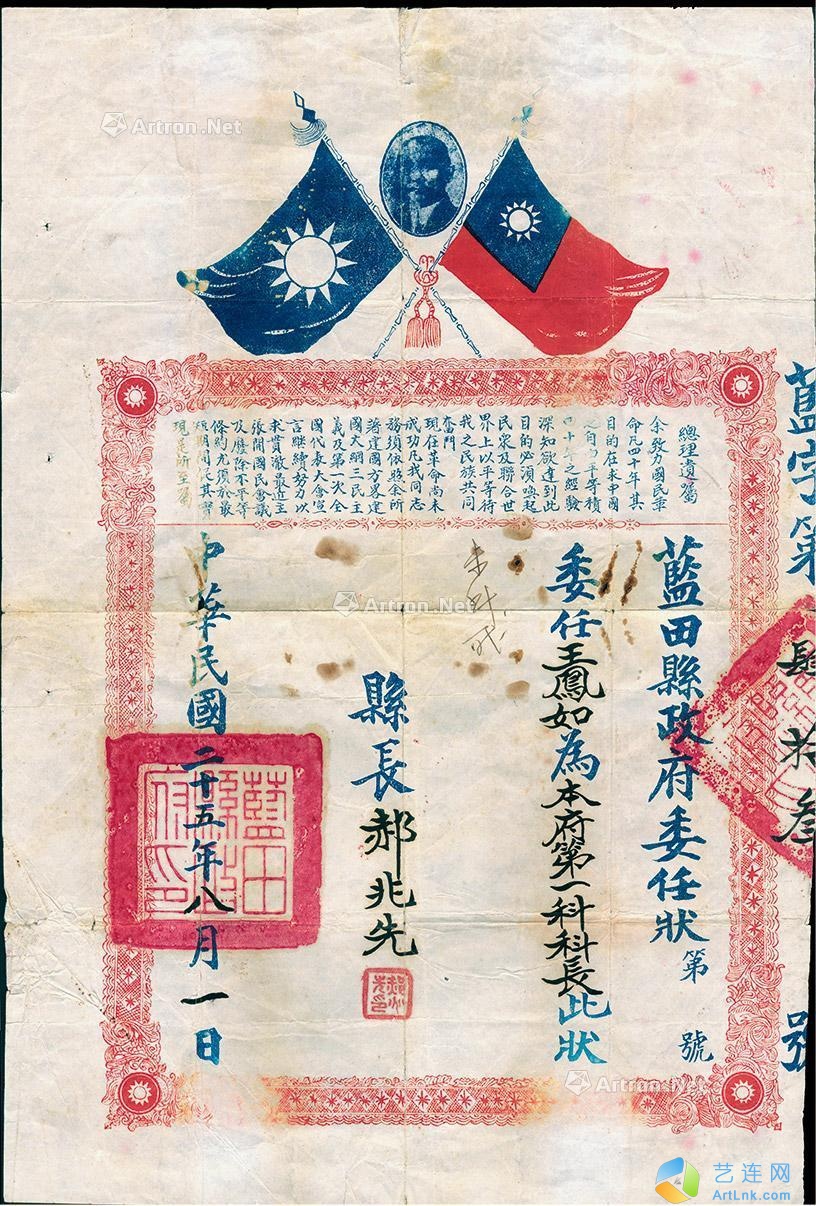 Artron.Net
總理遺囑
余致力國民革
命凡四十年其
目的在求中國
之自由平等積
四十年之經驗
深知欲達到此
目的必須喚起
民眾及聯合世
界上以平等待
我之民族共同
奮鬥
現在革命尚未
成功凡我同志
務須依照余所
著建國方畧建
國大綱三民主
義及第一次全
國代表大會宣
言繼續努力以
求貫澈最近主
張開國民會議
及廢除不平等
條約尤須於最
短期間促其實
現是所至囑
藍字第肆拾叁號
藍田縣政府委任狀 第 號
委任王鳳如為本府第一科科長此狀
縣長郝兆先
中華民國二十五年八月一日
藍田縣政府印
Artron.Net
Artron.Net
艺连网
ArtLnk.com